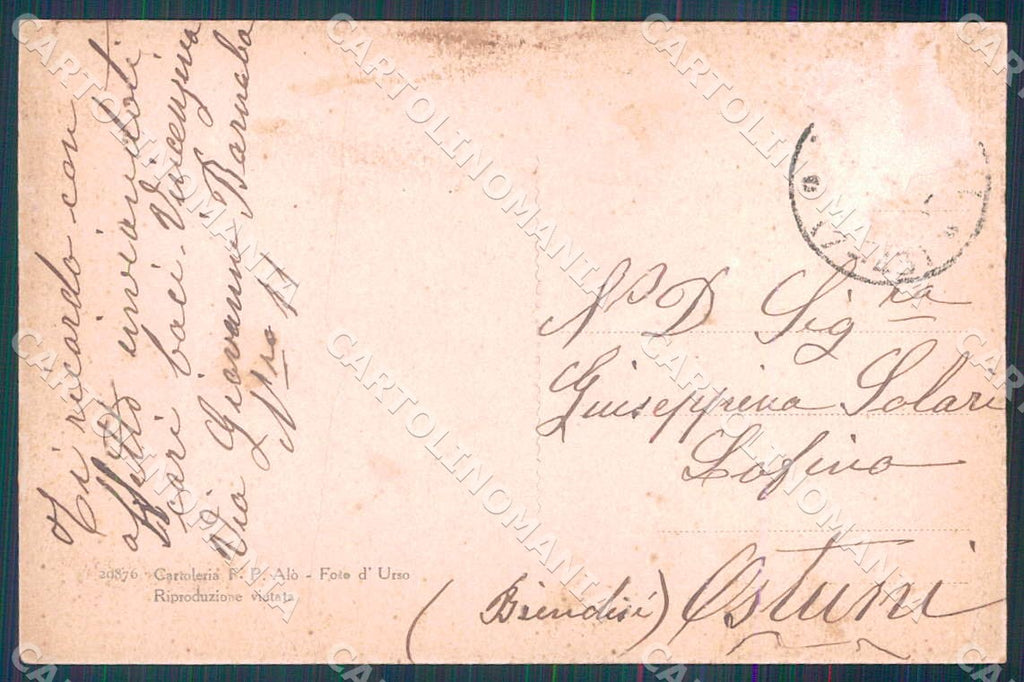 Ti ricordo con
affetto inviandoti
cari baci. Vincenzina
Via Giovanni Barnaba
Nro 11
N D Sig.ra
Giuseppina Solari
Lofino
(Brindisi) Ostuni
20876 Cartoleria F. P. Alò - Foto d' Urso
Riproduzione vietata
CARTOLINOMANIA